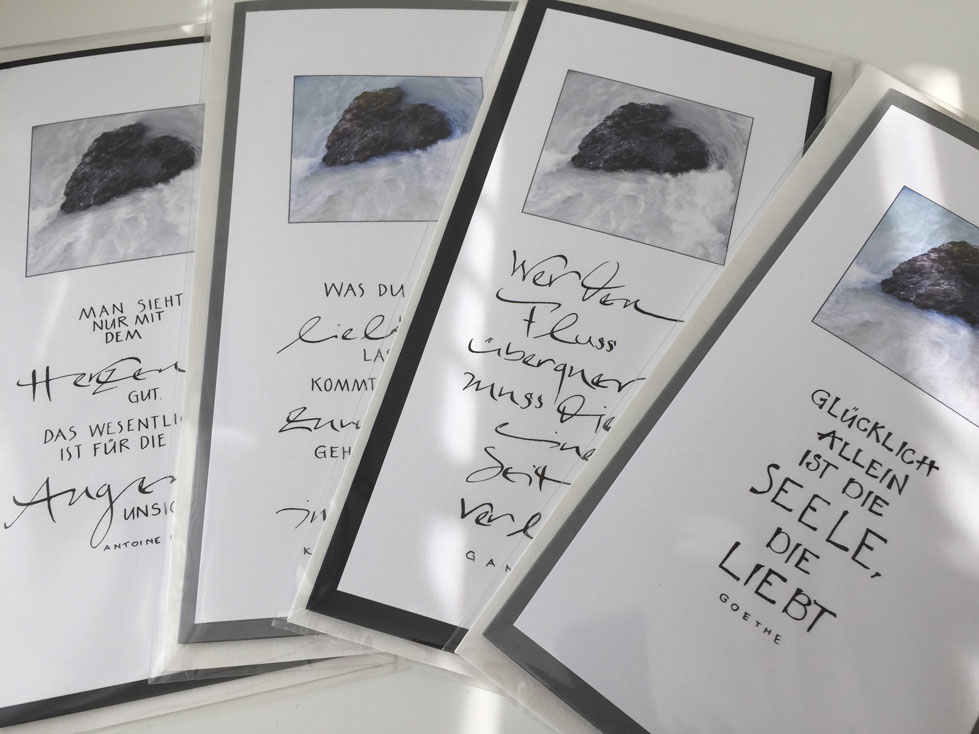 MAN SIEHT
NUR MIT
DEM
Herzen
GUT.
DAS WESENTLI
IST FÜR DIE
Augen
UNSIC
ANTOINE
WAS DU
lieb
LAS
KOMMT
zur
GEH
im
K
Wer den
Fluss
überquer
muss die
eine
Seit
verl
GAN
GLÜCKLICH
ALLEIN
IST DIE
SEELE,
DIE
LIEBT
GOETHE